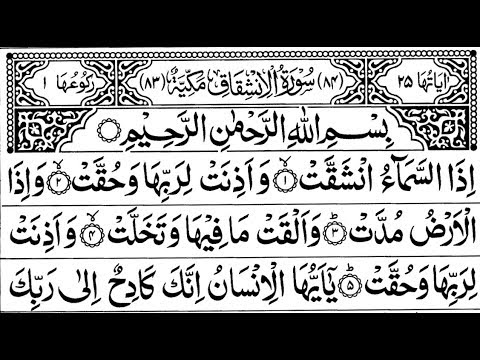 اٰیَاتُهَا ۲۵ (۸۴) سُوْرَةُ الْاِنْشِقَاقِ مَكِّیَّةٌ (۸۳) رُكُوْعُهَا ۱
بِسْمِ اللهِ الرَّحْمٰنِ الرَّحِیْمِ
اِذَا السَّمَآءُ انْشَقَّتْ ۙ۱ وَاَذِنَتْ لِرَبِّهَا وَحُقَّتْ ۙ۲ وَاِذَا
الْاَرْضُ مُدَّتْ ۙ۳ وَاَلْقَتْ مَا فِیْهَا وَتَخَلَّتْ ۙ۴ وَاَذِنَتْ
لِرَبِّهَا وَحُقَّتْ ؕ۵ یٰۤاَیُّهَا الْاِنْسَانُ اِنَّكَ كَادِحٌ اِلٰی رَبِّكَ